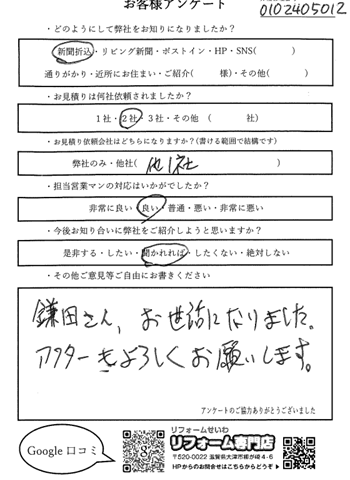 お客様アンケート
0102405012
・どのようにして弊社をお知りになりましたか？
新聞折込・リビング新聞・ポストイン・HP・SNS(　　　)
通りがかり・近所にお住まい・ご紹介(　　　様)・その他(　　　)
・お見積りは何社依頼されましたか？
1社・2社・3社・その他（　　　社）
・お見積り依頼会社はどちらになりますか？(書ける範囲で結構です)
弊社のみ・他社(　他1社　)
・担当営業マンの対応はいかがでしたか？
非常に良い・良い・普通・悪い・非常に悪い
・今後お知り合いに弊社をご紹介しようと思いますか？
是非する・したい・聞かれれば・したくない・絶対しない
・その他ご意見等ご自由にお書きください
鎌田さん、お世話になりました。
アフターもよろしくお願いします。
アンケートのご協力ありがとうございました
Google 口コミ
リフォームせいわ
リフォーム専門店
〒520-0022 滋賀県大津市柳が崎4-6
HPからのお問合せはこちらからどうぞ▶